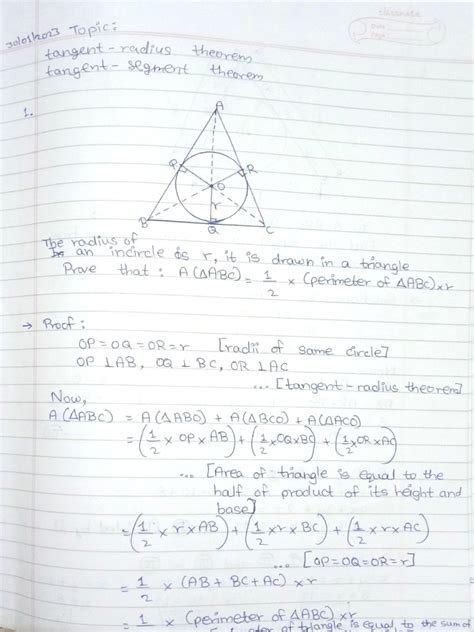 classmate
Date
Page
30/01/2023 Topic:
tangent-radius theorem
tangent-segment theorem
1.
A
P
R
O
r
B
Q
C
The radius of
an incircle is r, it is drawn in a triangle
Prove that : A(△ABC) = 1/2 × (perimeter of △ABC) × r
→ Proof :
OP = OQ = OR = r [radii of same circle]
OP ⊥ AB, OQ ⊥ BC, OR ⊥ AC
... [tangent-radius theorem]
Now,
A(△ABC) = A(△ABO) + A(△BCO) + A(△ACO)
= (1/2 × OP × AB) + (1/2 × OQ × BC) + (1/2 × OR × AC)
... [Area of triangle is equal to the
half of product of its height and
base]
= (1/2 × r × AB) + (1/2 × r × BC) + (1/2 × r × AC)
... [OP = OQ = OR = r]
= 1/2 × (AB + BC + AC) × r
= 1/2 × (perimeter of △ABC) × r
of triangle is equal to the sum of